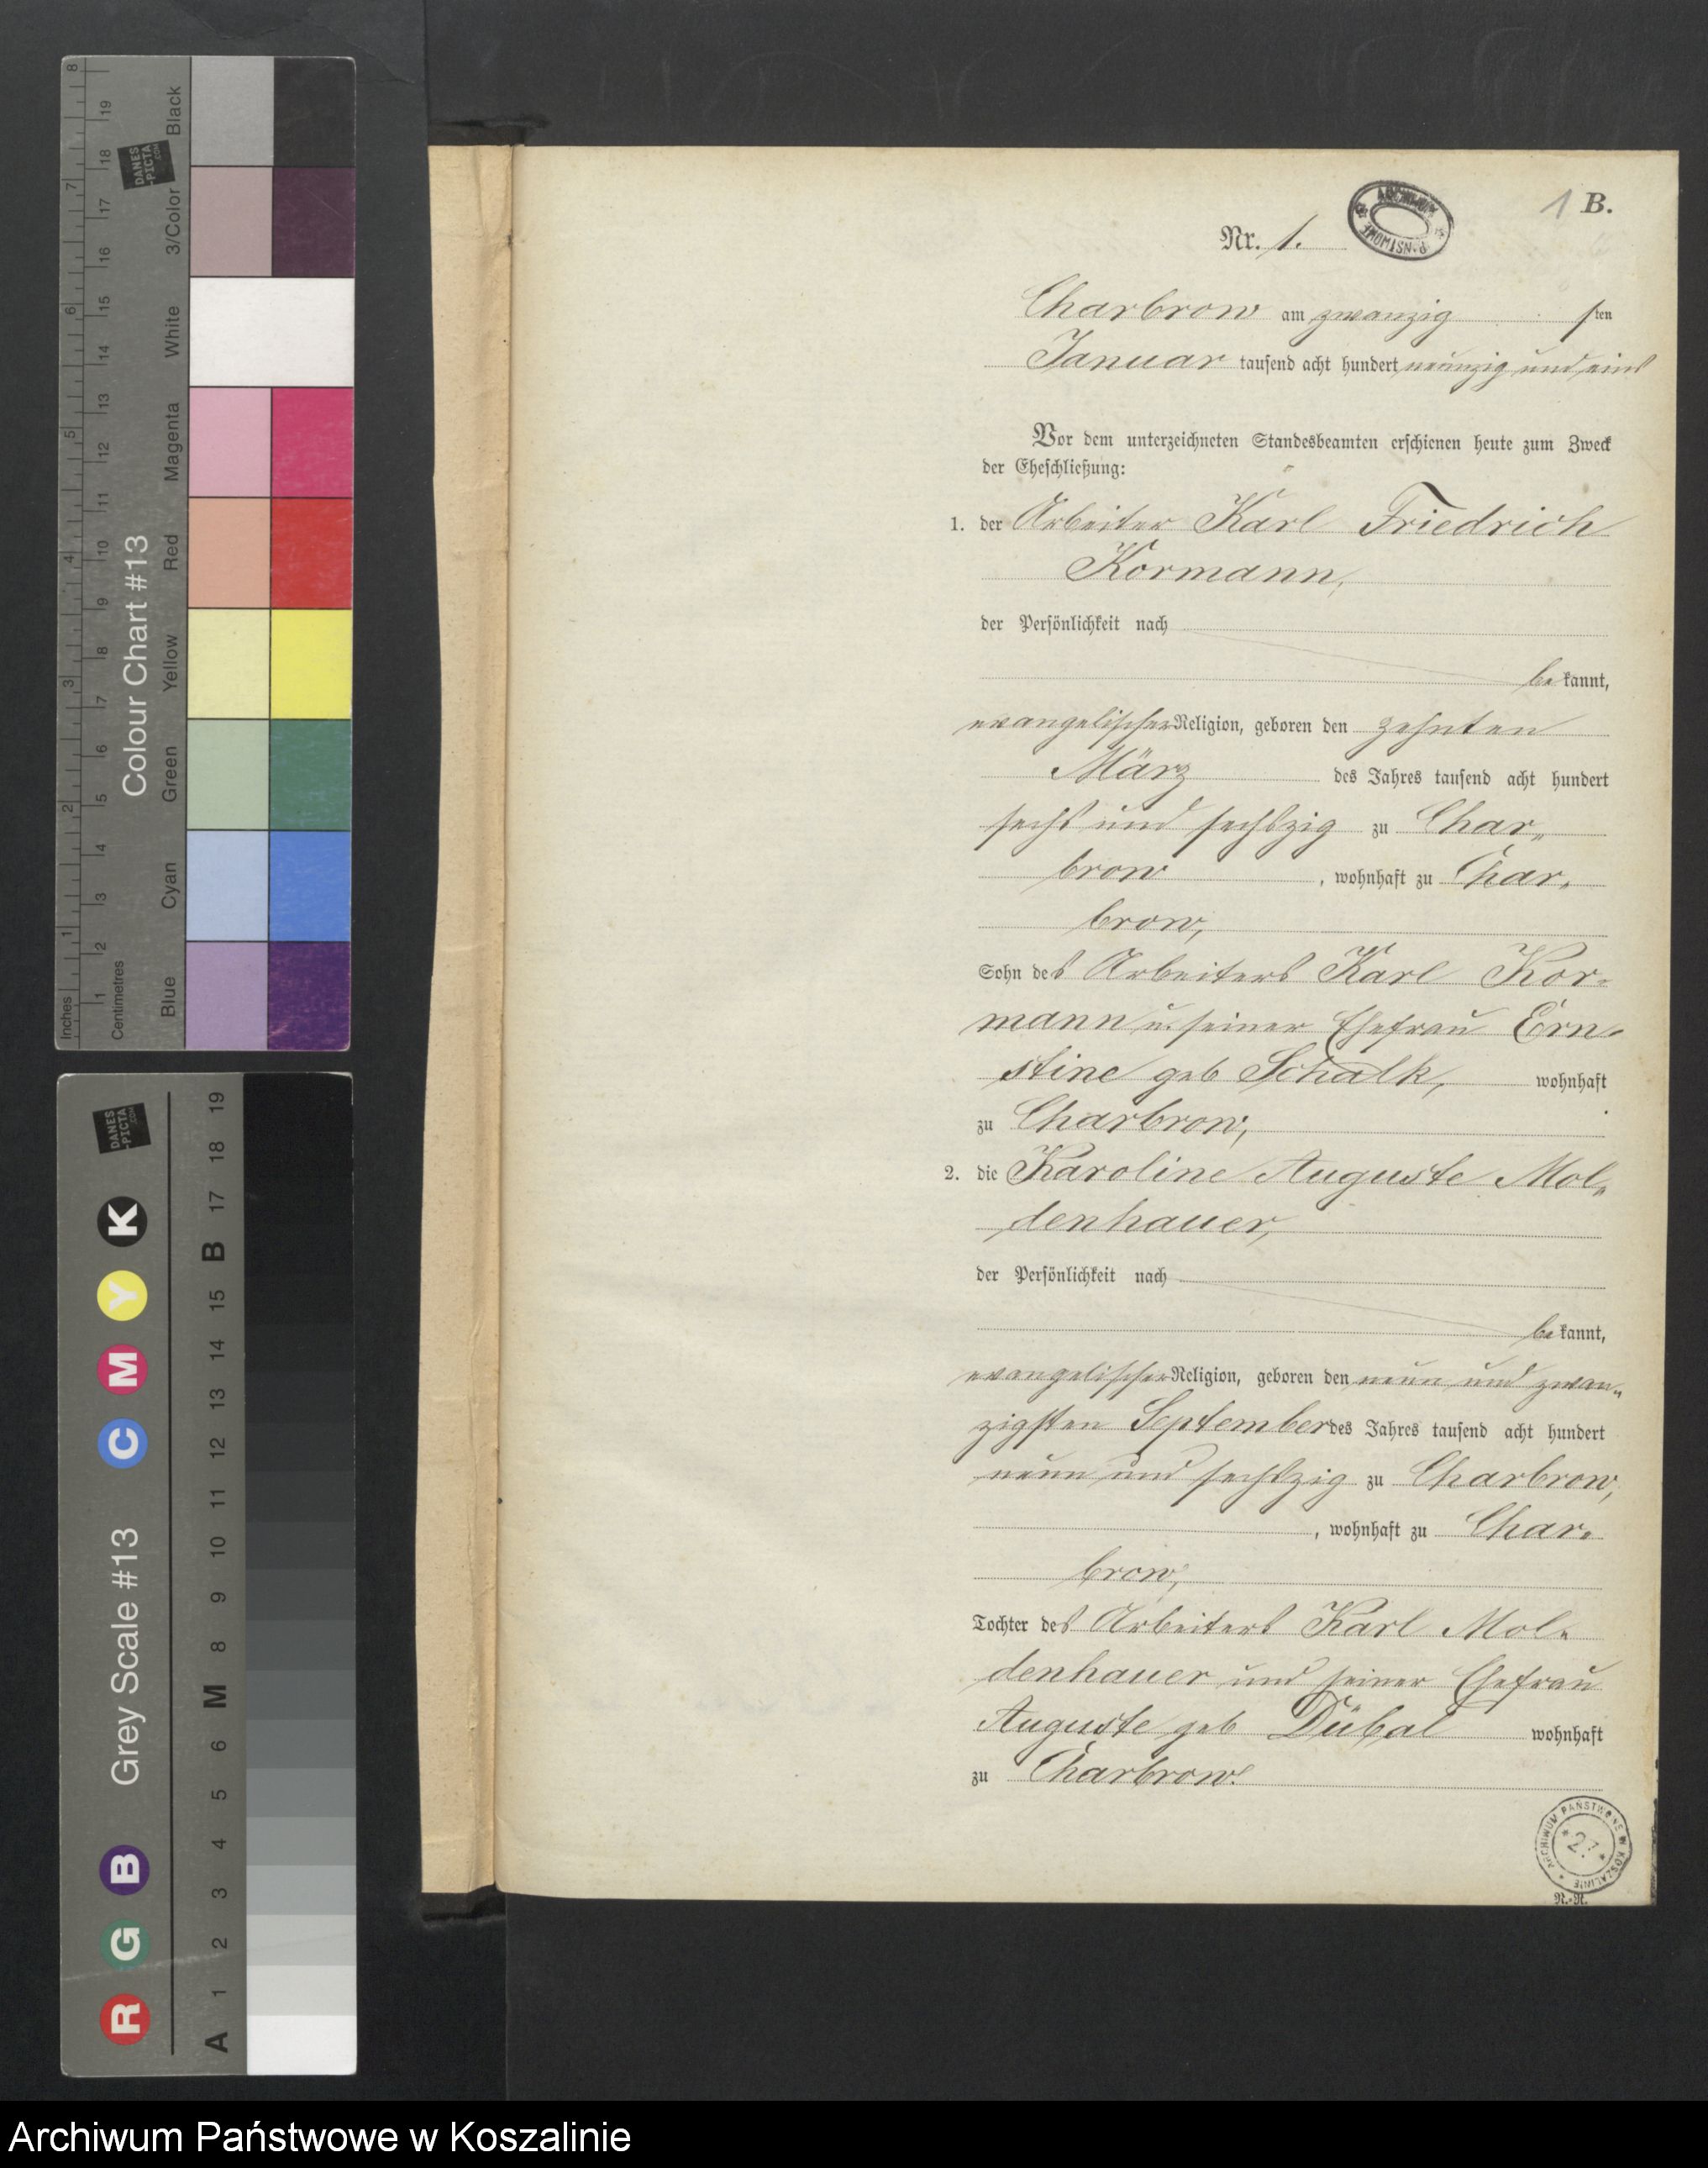 1 B.
Nr. 1.
ARCHIWUM PAŃSTWOWE
Charbrow am zwanzig sten
Januar tausend acht hundert neunzig und eins
Vor dem unterzeichneten Standesbeamten erschienen heute zum Zweck
der Eheschließung:
1. der Arbeiter Karl Friedrich
Kormann,
der Persönlichkeit nach
be kannt,
evangelischer Religion, geboren den zehnten
März des Jahres tausend acht hundert
sechs und sechszig zu Char„
brow , wohnhaft zu Char„
brow,
Sohn des Arbeiters Karl Kor„
mann u. seiner Ehefrau Ern„
stine geb Schalk, wohnhaft
zu Charbrow,
2. die Karoline Auguste Mol„
denhauer,
der Persönlichkeit nach
be kannt,
evangelischer Religion, geboren den neun und zwan„
zigsten September des Jahres tausend acht hundert
neun und sechszig zu Charbrow,
, wohnhaft zu Char„
brow,
Tochter des Arbeiters Karl Mol„
denhauer und seiner Ehefrau
Auguste geb Dübal wohnhaft
zu Charbrow.
ARCHIWUM PAŃSTWOWE W KOSZALINIE
N.-R.
Inches
1 2 3 4 5 6 7 8
Centimetres
1 2 3 4 5 6 7 8 9 10 11 12 13 14 15 16 17 18 19
Colour Chart #13
DANES
-PICTA
.COM
Blue Cyan Green Yellow Red Magenta White 3/Color Black
Grey Scale #13
DANES
-PICTA
.COM
R G B C M Y K
A 1 2 3 4 5 6 M 8 9 10 11 12 13 14 15 B 17 18 19
Archiwum Państwowe w Koszalinie